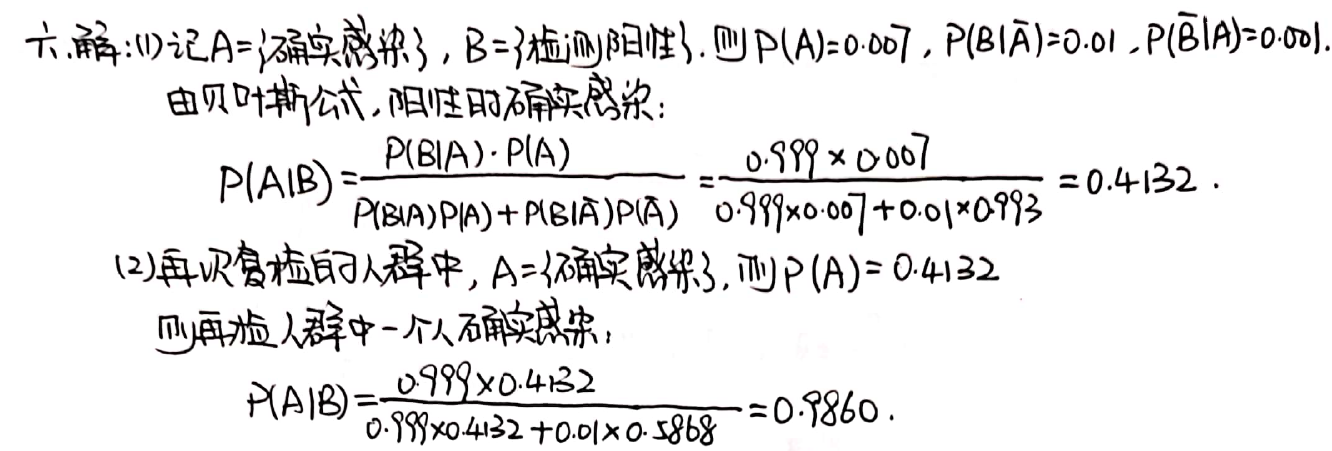 六.解:(1)记A={确实感染},B={检测阳性}.则P(A)=0.007,P(B|Ā)=0.01,P(B̄|A)=0.001.
由贝叶斯公式,阳性时确实感染:
P(A|B)=\frac{P(B|A)·P(A)}{P(B|A)P(A)+P(B|Ā)P(Ā)}=\frac{0.999×0.007}{0.999×0.007+0.01×0.993}=0.4132.
(2)再次复检的人群中,A={确实感染},则P(A)=0.4132
则再检人群中一个人确实感染:
P(A|B)=\frac{0.999×0.4132}{0.999×0.4132+0.01×0.5868}=0.9860.